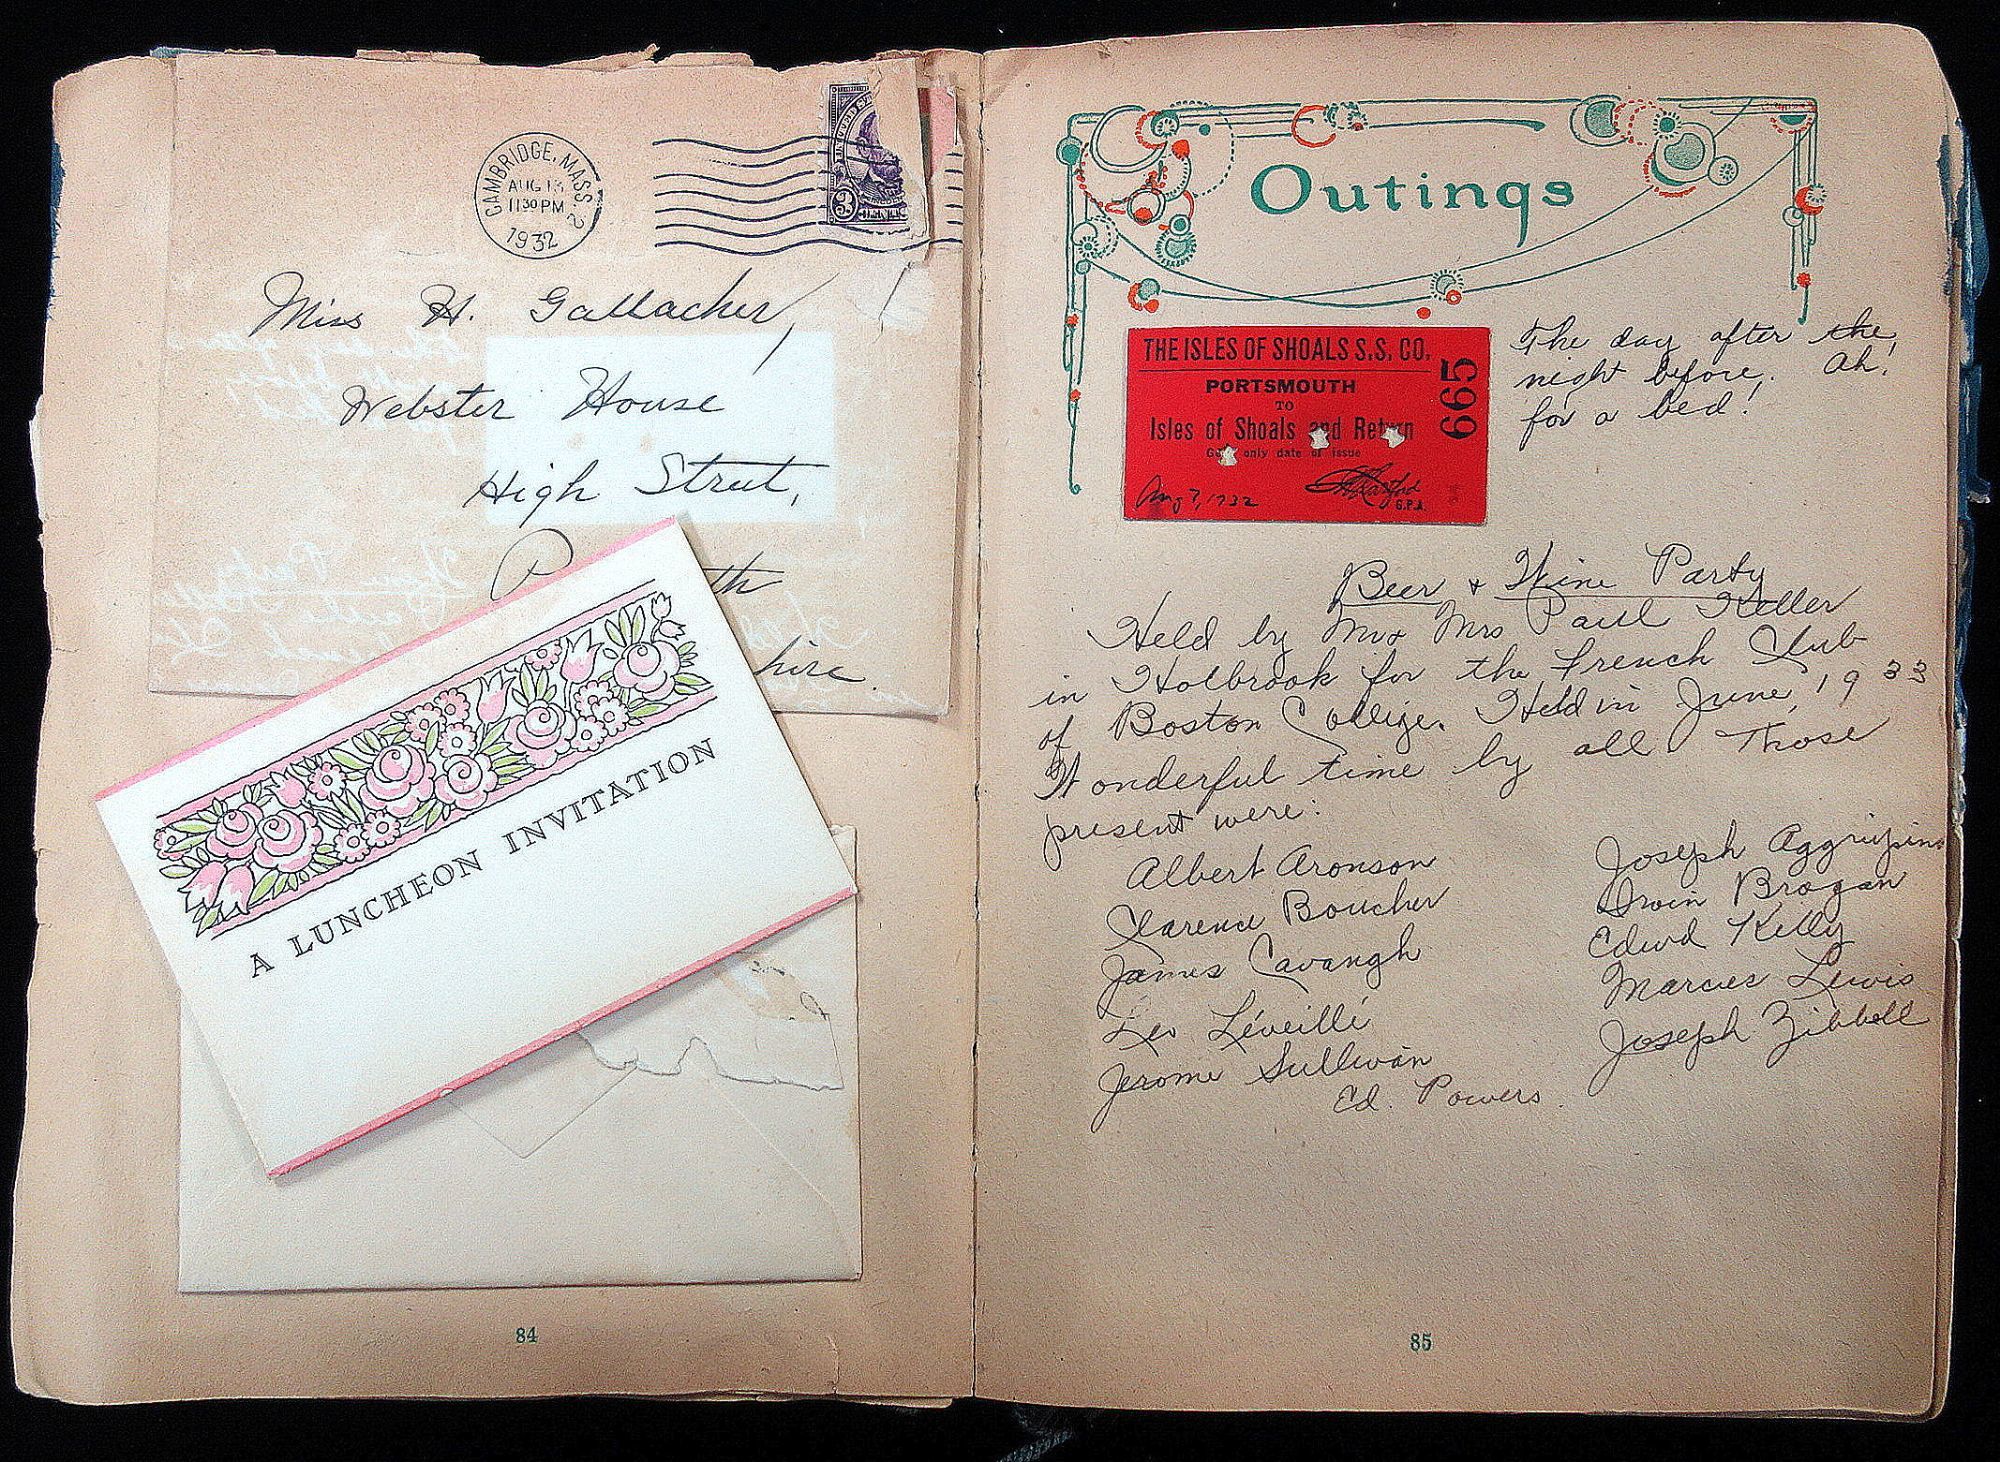 CAMBRIDGE, MASS. 2
AUG 13
11 30 PM
1932
3 CENTS 3
Miss H. Gallacher,
Webster House
High Street,
P th
hire.
A LUNCHEON INVITATION
84
Outings
THE ISLES OF SHOALS S.S. CO.
PORTSMOUTH
TO
Isles of Shoals and Return
Good only date of issue
Aug 7, 1932
G.P.A.
665
The day after the
night before. Ah!
for a bed!
Beer & Wine Party
Held by Mr & Mrs Paul Keller
in Holbrook for the French Club
of Boston College. Held in June, 1933
Wonderful time by all. Those
present were:
Albert Aronson
Clarence Boucher
James Cavangh
Leo Léveillé
Jerome Sullivan
Joseph
Irwin Brogan
Edwd Kelly
Marcus Lewis
Joseph Zibbell
Ed. Powers.
85